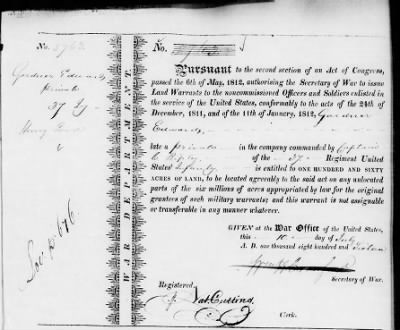 No. 5762
Gardner Edwards
private
37 Ig
6
Loc p 676
WAR DEPARTMENT
No.
Pursuant to the second section of an Act of Congress,
passed the 6th of May, 1812, authorising the Secretary of War to issue
Land Warrants to the noncommissioned Officers and Soldiers enlisted in
the service of the United States, conformably to the acts of the 24th of
December, 1811, and of the 11th January, 1812, Gardner
Edwards,
late a private in the company commanded by Captain
of the 37 Regiment United
States Infantry is entitled to ONE HUNDRED AND SIXTY
ACRES OF LAND, to be located agreeably to the said act on any unlocated
parts of the six millions of acres appropriated by law for the original
grantees of such military warrants; and this warrant is not assignable
or transferable in any manner whatever.
GIVEN at the War Office of the United States,
this 10 day of July
A. D. one thousand eight hundred and sixteen
Secretary of War.
Registered
Nat. Cutting,
Clerk.